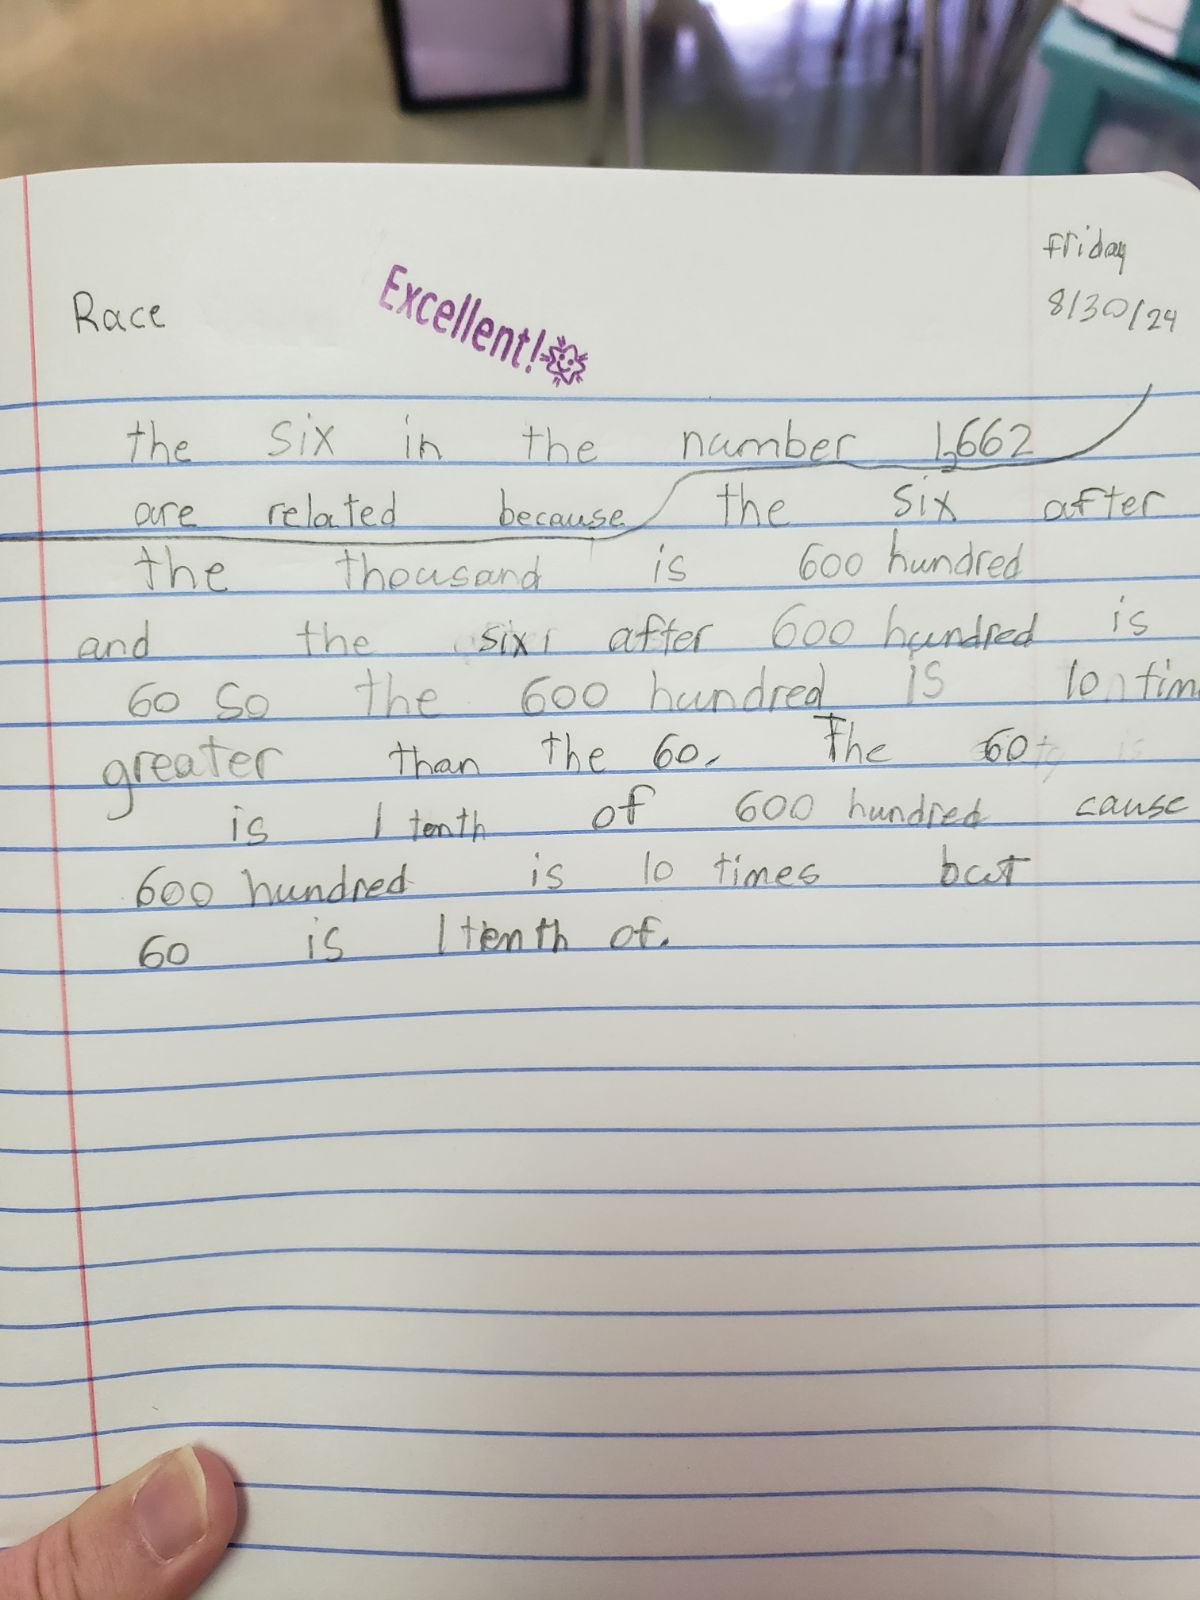 friday
8/30/24
Race
Excellent!
the six in the number 1,662
are related because the six after
the thousand is 600 hundred
and the six after 600 hundred is
60 so the 600 hundred is 10 tim
greater than the 60. The 60
is 1 tenth of 600 hundred cause
600 hundred is 10 times but
60 is 1 tenth of.